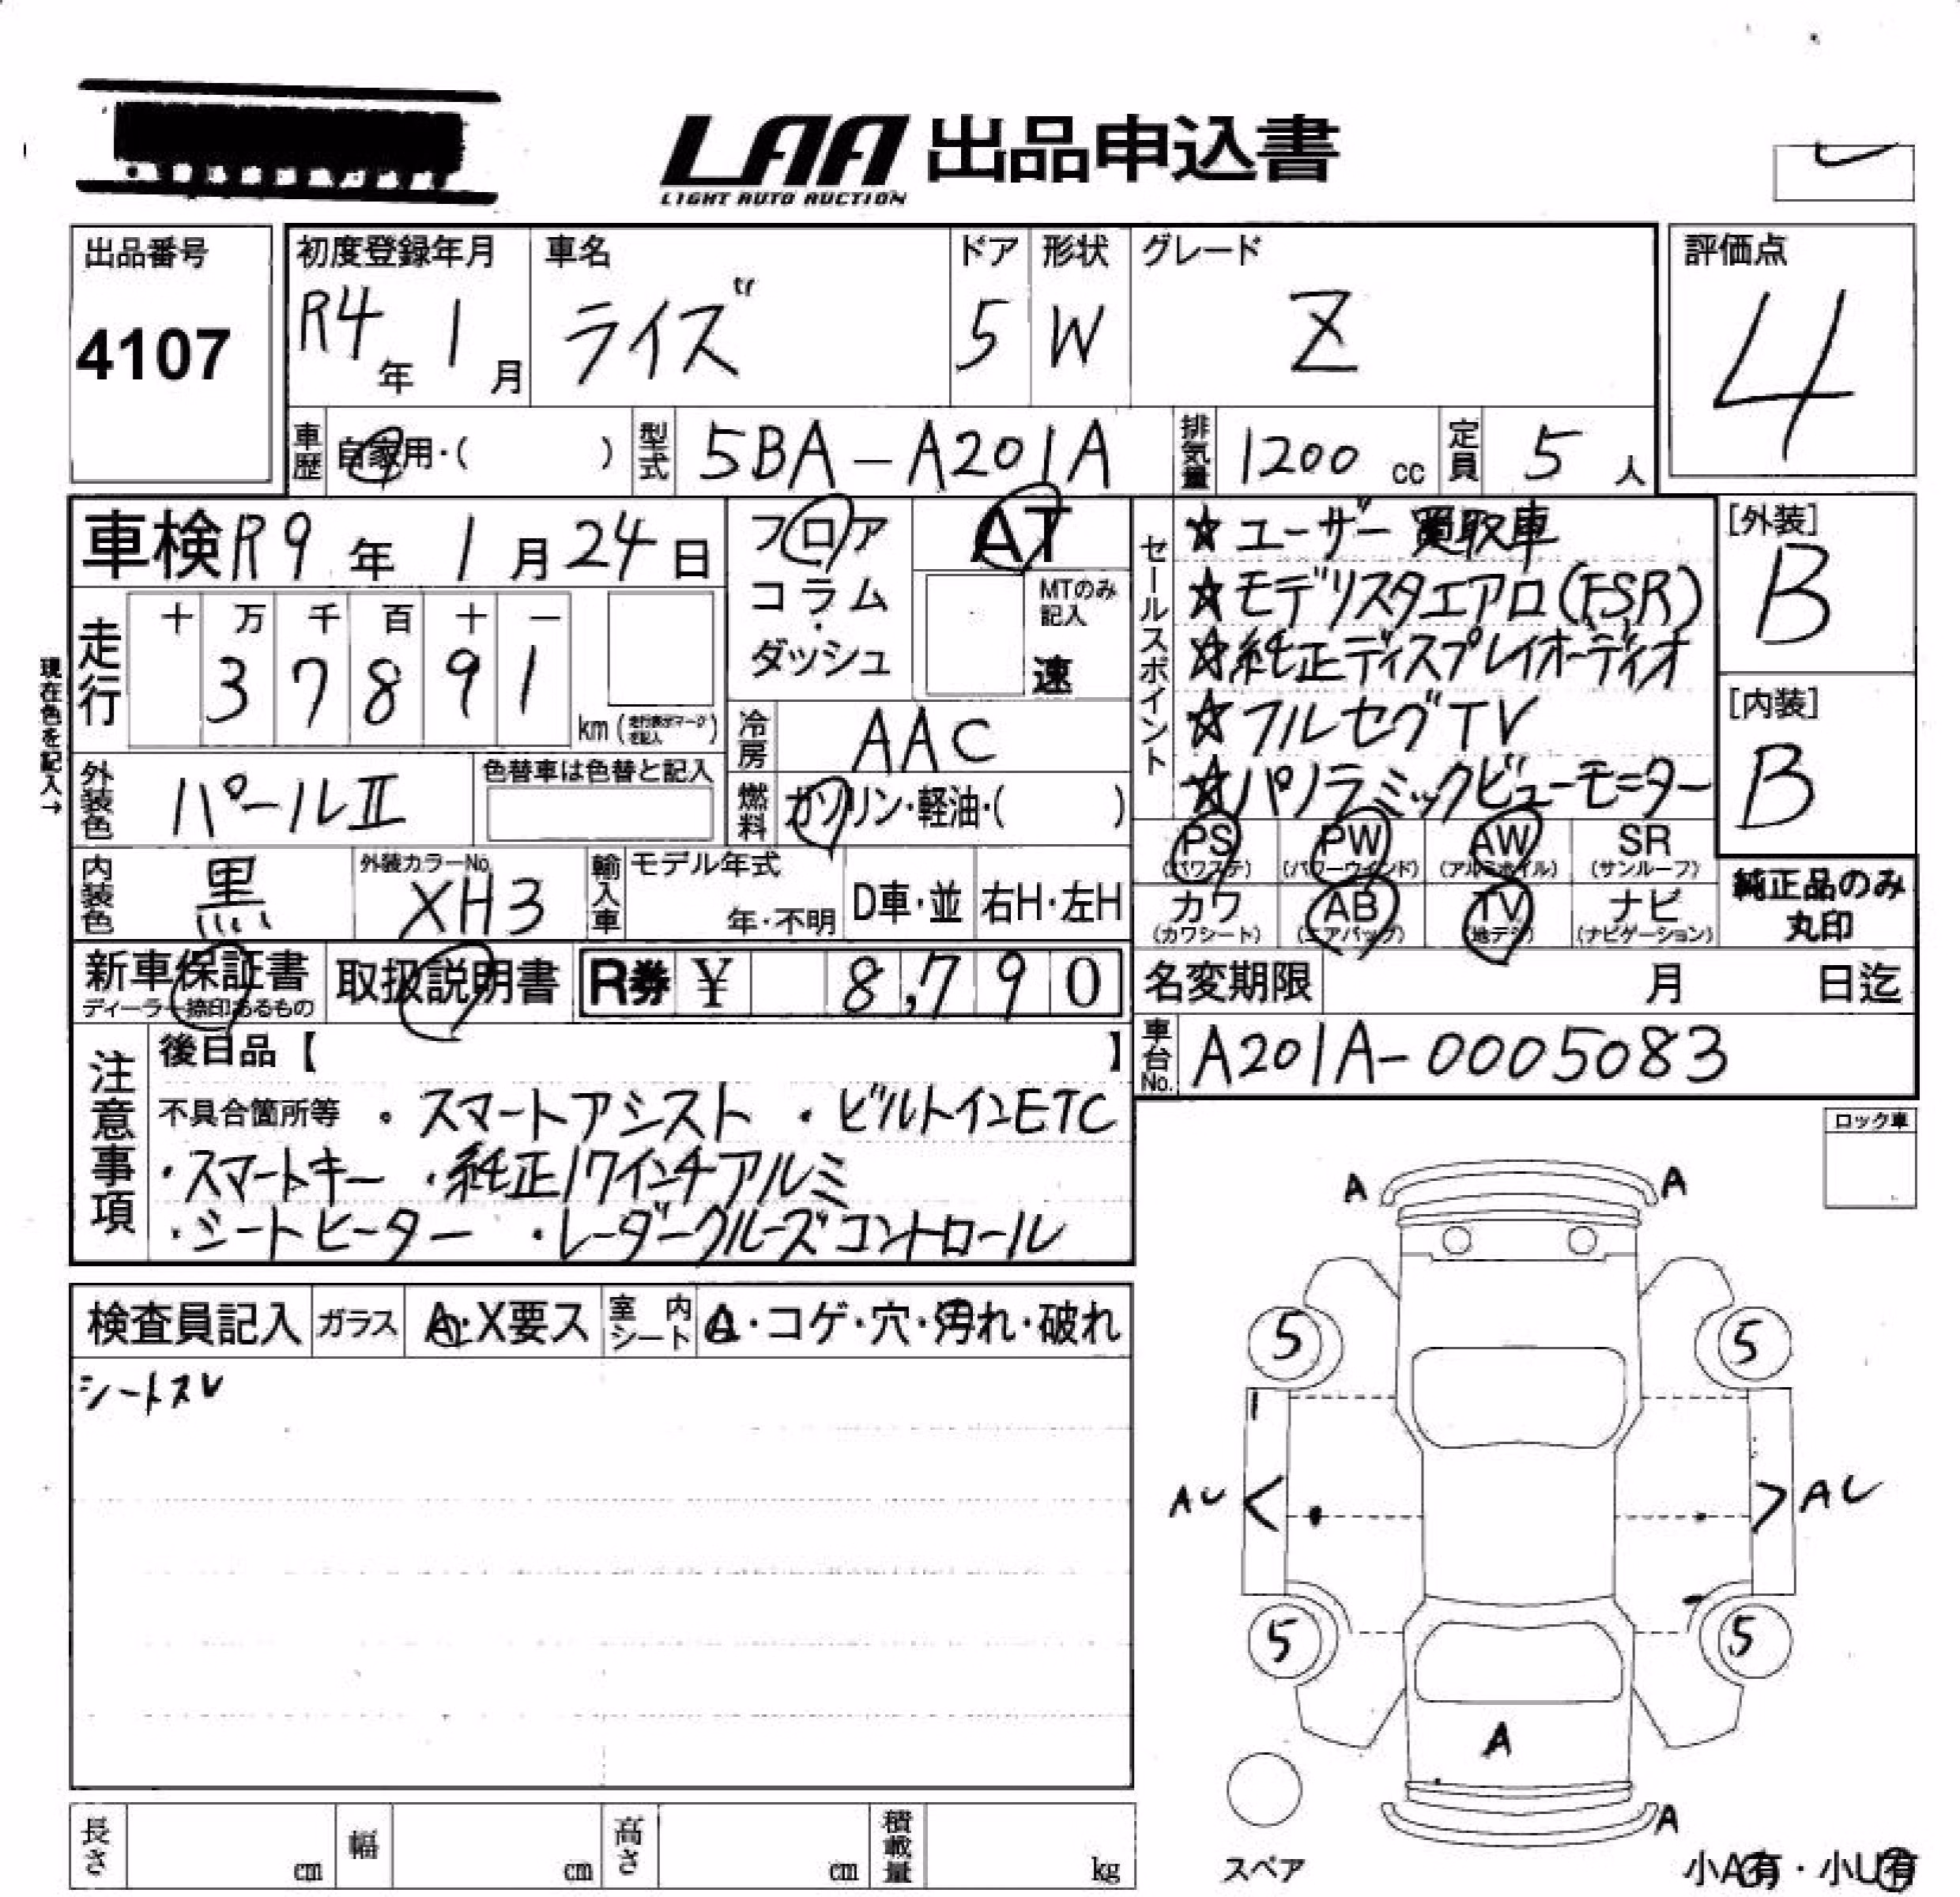 LAA 出品申込書
LIGHT AUTO AUCTION
出品番号
4107
初度登録年月
R4年 1月
車名
ライズ
ドア
5
形状
W
グレード
Z
評価点
4
車歴 自家用・( )
型式 5BA-A201A
排気量 1200 cc
定員 5 人
車検 R9年 1月 24日
フロア
コラム
・
ダッシュ
AT
MTのみ
記入
速
セールスポイント
☆ユーザー買取車
☆モデリスタエアロ(FSR)
☆純正ディスプレイオーディオ
☆フルセグTV
☆パノラミックビューモニター
[外装]
B
[内装]
B
現在色を記入→
走行
十 万 千 百 十 一
3 7 8 9 1
km(走行表示マークを記入)
冷房 AAC
燃料 ガソリン・軽油・( )
外装色 パールII
色替車は色替と記入
内装色 黒
外装カラーNo.
XH3
輸入車
モデル年式
年・不明
D車・並
右H・左H
PS
(パワステ)
PW
(パワーウインド)
AW
(アルミホイル)
SR
(サンルーフ)
カワ
(カワシート)
AB
(エアバック)
TV
(地デジ)
ナビ
(ナビゲーション)
純正品のみ
丸印
新車保証書
ディーラー捺印あるもの
取扱説明書
R券 ¥ 8,790
名変期限 月 日迄
車台No. A201A-0005083
注意事項
後日品【 】
不具合箇所等 ・スマートアシスト ・ビルトインETC
・スマートキー ・純正17インチアルミ
・シートヒーター ・レーダークルーズコントロール
ロック車
検査員記入
ガラス
A・X要ス
室内シート
・コゲ・穴・汚れ・破れ
シートスレ
A A
5 5
AU AU
5 5
A
A
スペア
小A有・小U有
長さ cm
幅 cm
高さ cm
積載量 kg